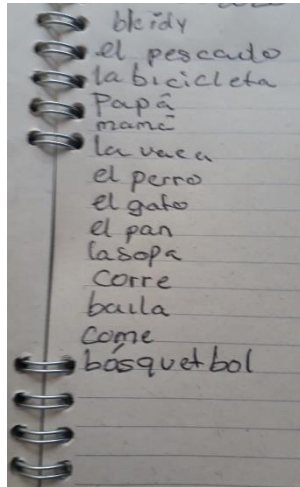 el pescado
la bicicleta
Papá
mamá
la vaca
el perro
el gato
el pan
la sopa
corre
baila
come
básquetbol